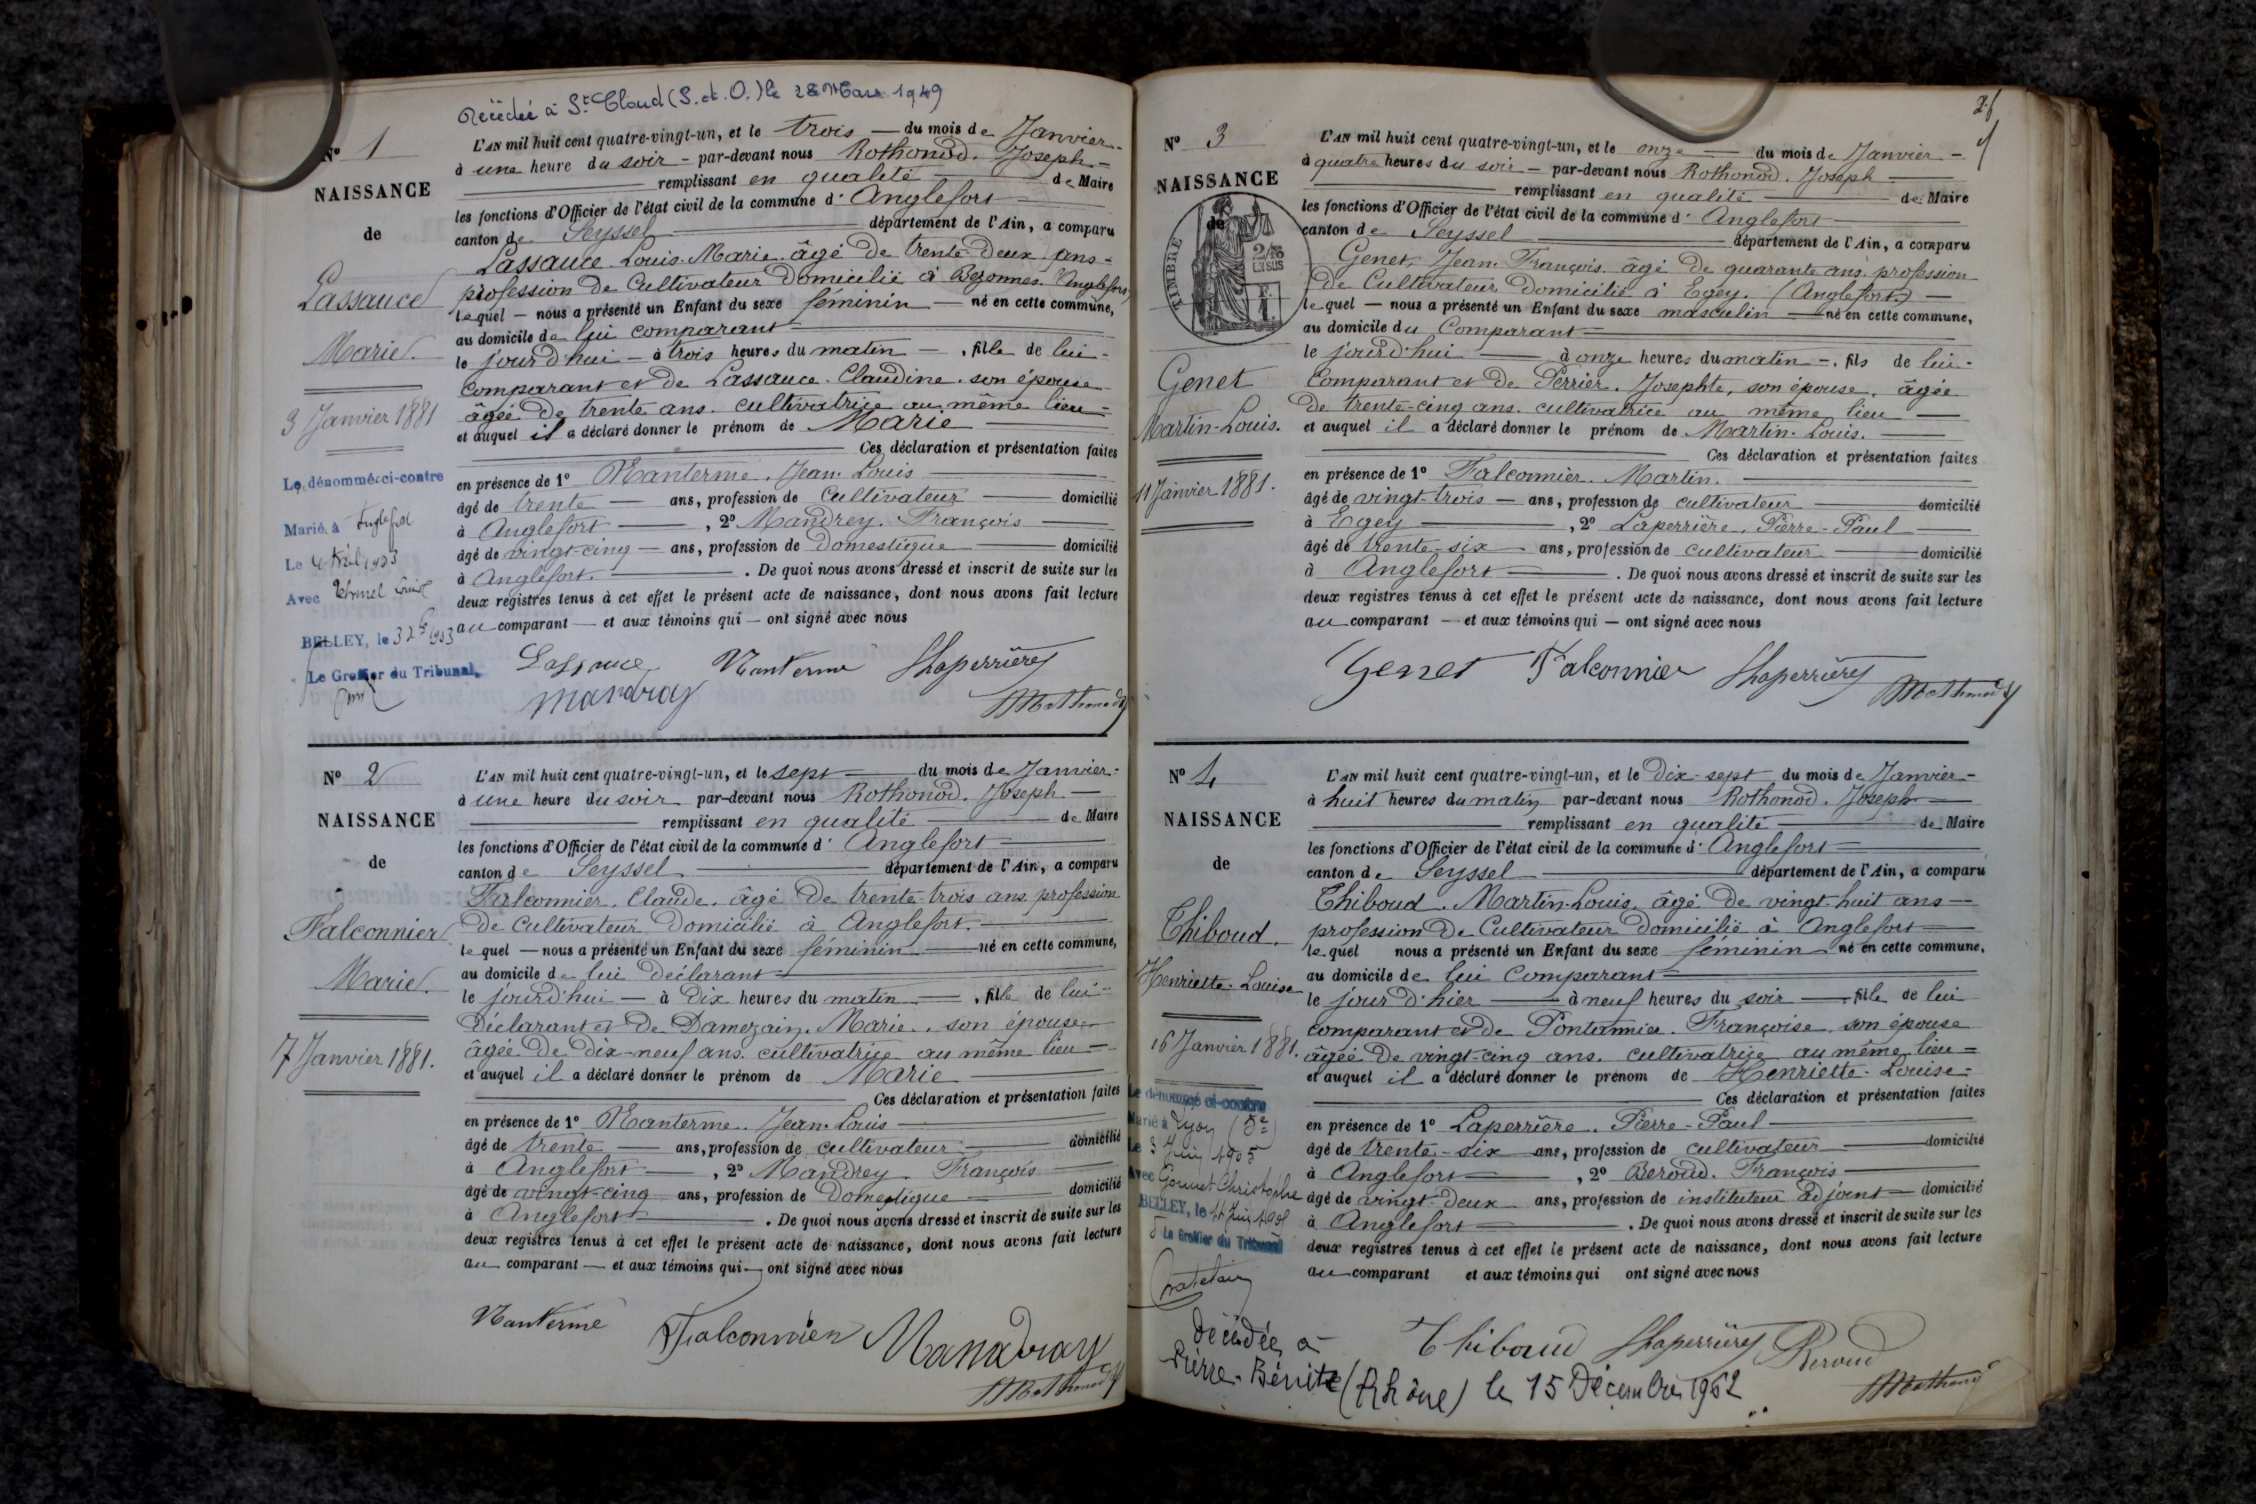 Décédée à St Cloud (S. et. O.) le 28 Mars 1949
N° 1
NAISSANCE
de
Lassauce
Marie.
3 Janvier 1881
Le dénommé ci-contre
Marié à Anglefort
Le
Avec
BELLEY, le
Le Greffier du Tribunal,
L'AN mil huit cent quatre-vingt-un, et le trois — du mois de Janvier -
à une heure du soir - par-devant nous Rothonod. Joseph. -
remplissant en qualité de Maire
les fonctions d'Officier de l'état civil de la commune d' Anglefort
canton de Seyssel département de l'Ain, a comparu
Lassauce. Louis. Marie. âgé de trente-deux ans -
profession de Cultivateur domicilié à Bezonnes. (Anglefort)
lequel — nous a présenté un Enfant du sexe féminin — né en cette commune,
au domicile de lui comparant
le jourd'hui — à trois heures du matin — , fille de lui -
comparant et de Lassauce. Claudine. son épouse
âgée de trente ans. cultivatrice au même lieu -
et auquel il a déclaré donner le prénom de Marie
Ces déclaration et présentation faites
en présence de 1° Nanterme. Jean Louis
âgé de trente — ans, profession de cultivateur — domicilié
à Anglefort — , 2° Mandrey. François
âgé de vingt-cinq — ans, profession de Domestique — domicilié
à Anglefort. — . De quoi nous avons dressé et inscrit de suite sur les
deux registres tenus à cet effet le présent acte de naissance, dont nous avons fait lecture
au comparant — et aux témoins qui — ont signé avec nous
Lassauce Nanterme JLaperrière
Mandray
JRothonod
N° 2
NAISSANCE
de
Falconnier
Marie.
7 Janvier 1881.
L'AN mil huit cent quatre-vingt-un, et le sept — du mois de Janvier -
à une heure du soir par-devant nous Rothonod. Joseph. —
remplissant en qualité de Maire
les fonctions d'Officier de l'état civil de la commune d' Anglefort
canton de Seyssel département de l'Ain, a comparu
Falconnier. Claude. âgé de trente-trois ans profession
de cultivateur domicilié à Anglefort.
lequel — nous a présenté un Enfant du sexe féminin — né en cette commune,
au domicile de lui déclarant
le jourd'hui — à dix heures du matin — , fille de lui -
déclarant et de Damezain. Marie. son épouse
âgée de dix-neuf ans. cultivatrice au même lieu -
et auquel il a déclaré donner le prénom de Marie
Ces déclaration et présentation faites
en présence de 1° Nanterme. Jean Louis
âgé de trente — ans, profession de cultivateur — domicilié
à Anglefort — , 2° Mandrey François
âgé de vingt-cinq ans, profession de Domestique — domicilié
à Anglefort — . De quoi nous avons dressé et inscrit de suite sur les
deux registres tenus à cet effet le présent acte de naissance, dont nous avons fait lecture
au comparant — et aux témoins qui — ont signé avec nous
Nanterme Falconnier Manadray
JRothonod
N° 3
NAISSANCE
de
TIMBRE
Genet
Martin-Louis.
11 Janvier 1881.
L'AN mil huit cent quatre-vingt-un, et le onze — du mois de Janvier -
à quatre heures du soir - par-devant nous Rothonod. Joseph
remplissant en qualité de Maire
les fonctions d'Officier de l'état civil de la commune d' Anglefort
canton de Seyssel département de l'Ain, a comparu
Genet. Jean. François. âgé de quarante ans. profession
de Cultivateur domicilié à Egey. (Anglefort.) —
lequel — nous a présenté un Enfant du sexe masculin — né en cette commune,
au domicile du Comparant
le jourd'hui — à onze heures du matin - , fils de lui -
comparant et de Perrier. Josephte, son épouse. âgée
de trente-cinq ans. cultivatrice au même lieu —
et auquel il a déclaré donner le prénom de Martin-Louis.
Ces déclaration et présentation faites
en présence de 1° Falconnier. Martin.
âgé de vingt-trois — ans, profession de cultivateur — domicilié
à Egey — , 2° Laperrière. Pierre-Paul
âgé de trente-six ans, profession de cultivateur — domicilié
à Anglefort — . De quoi nous avons dressé et inscrit de suite sur les
deux registres tenus à cet effet le présent acte de naissance, dont nous avons fait lecture
au comparant — et aux témoins qui — ont signé avec nous
Genet Falconnier JLaperrière
JRothonod
N° 4
NAISSANCE
de
Thiboud.
Henriette-Louise
16 Janvier 1881.
Le dénommé ci-contre
Marié à Lyon (5e)
Le 3 Juin 1905
Avec Gonnet Christophe
BELLEY, le
Le Greffier du Tribunal
L'AN mil huit cent quatre-vingt-un, et le dix-sept du mois de Janvier -
à huit heures du matin par-devant nous Rothonod. Joseph —
remplissant en qualité de Maire
les fonctions d'Officier de l'état civil de la commune d' Anglefort
canton de Seyssel département de l'Ain, a comparu
Thiboud. Martin-Louis. âgé de vingt-huit ans —
profession de Cultivateur domicilié à Anglefort
lequel nous a présenté un Enfant du sexe féminin né en cette commune,
au domicile de lui comparant
le jour d'hier — à neuf heures du soir — , fille de lui
comparant et de Pontannier. Françoise son épouse
âgée de vingt-cinq ans. cultivatrice au même lieu -
et auquel il a déclaré donner le prénom de Henriette-Louise -
Ces déclaration et présentation faites
en présence de 1° Laperrière. Pierre-Paul
âgé de trente-six ans, profession de cultivateur — domicilié
à Anglefort — , 2° Beroud. François
âgé de vingt-deux ans, profession de instituteur adjoint — domicilié
à Anglefort — . De quoi nous avons dressé et inscrit de suite sur les
deux registres tenus à cet effet le présent acte de naissance, dont nous avons fait lecture
au comparant et aux témoins qui ont signé avec nous
Thiboud JLaperrière Beroud
JRothonod
Décédée à
Pierre-Bénite (Rhône) le 15 Décembre 1962